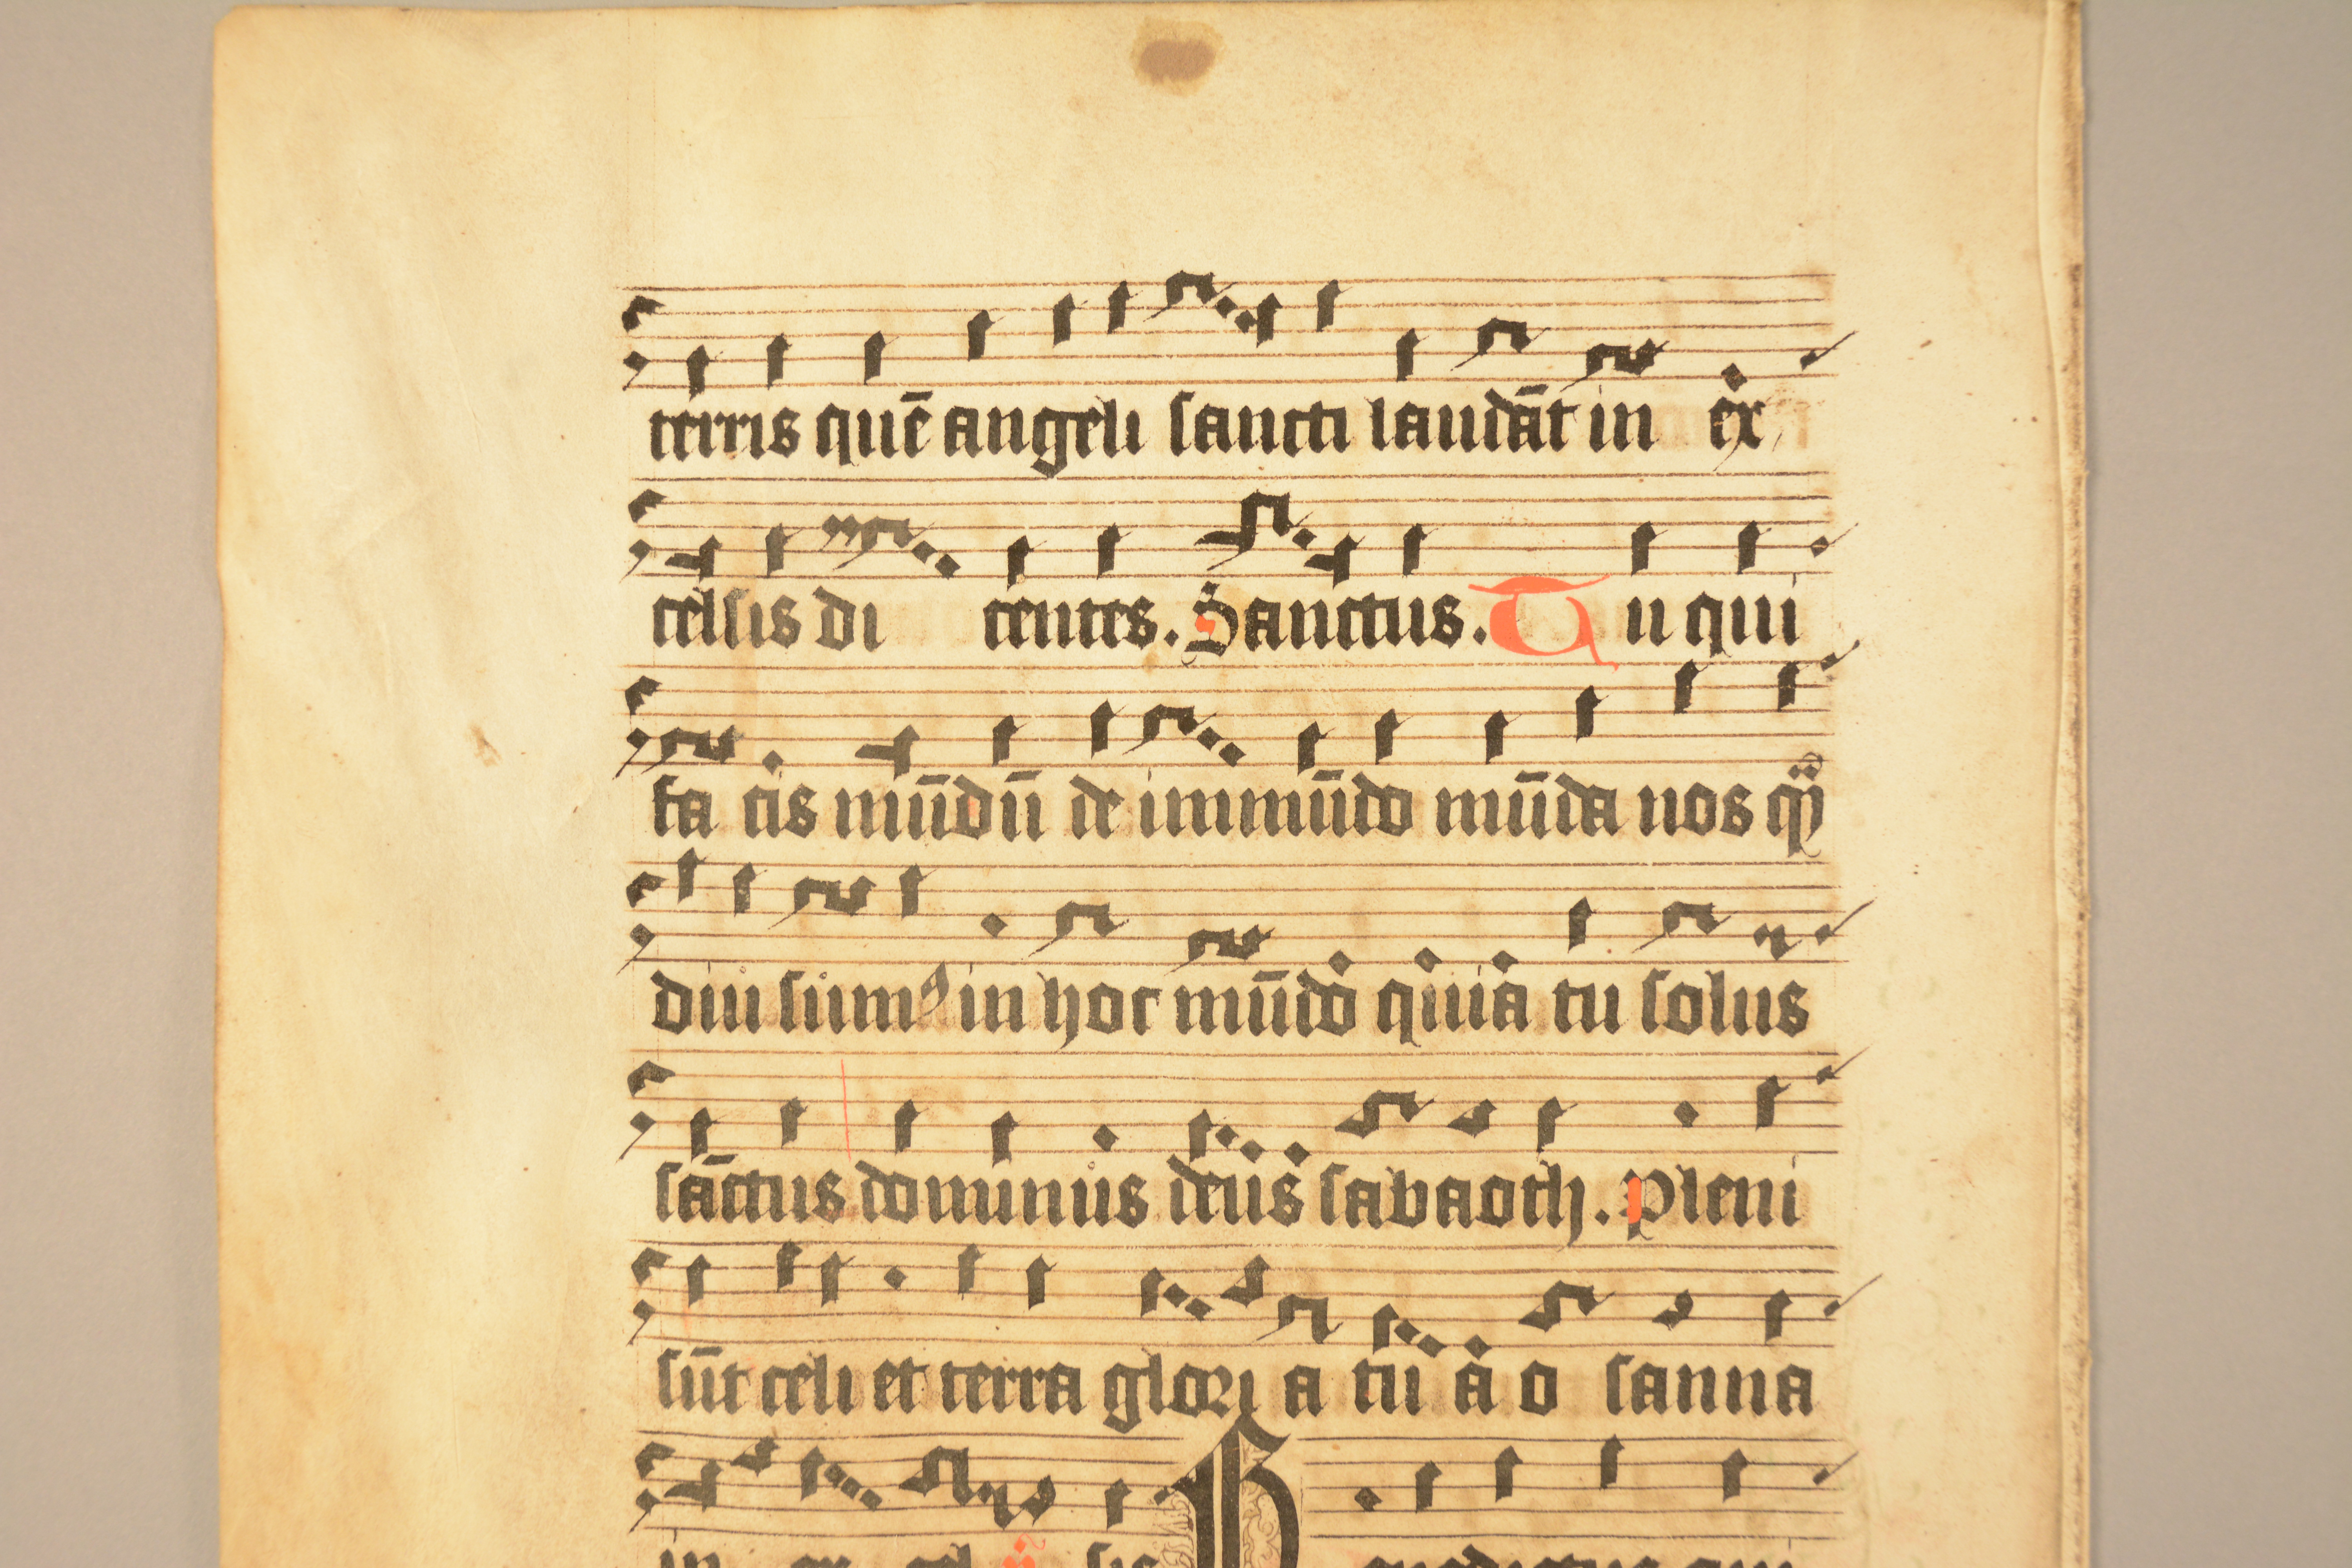 terris quē angeli sancti laudāt in ex
celsis di centes. Sanctus. Tu qui
fa cis mūdū de immūdo mūda nos qͥ
diu sumꝰ in hoc mūdo quia tu solus
sāctus dominus deus sabaoth. Pleni
sūt celi et terra glori a tu a o sanna
in ex cel sis Benedictus qui